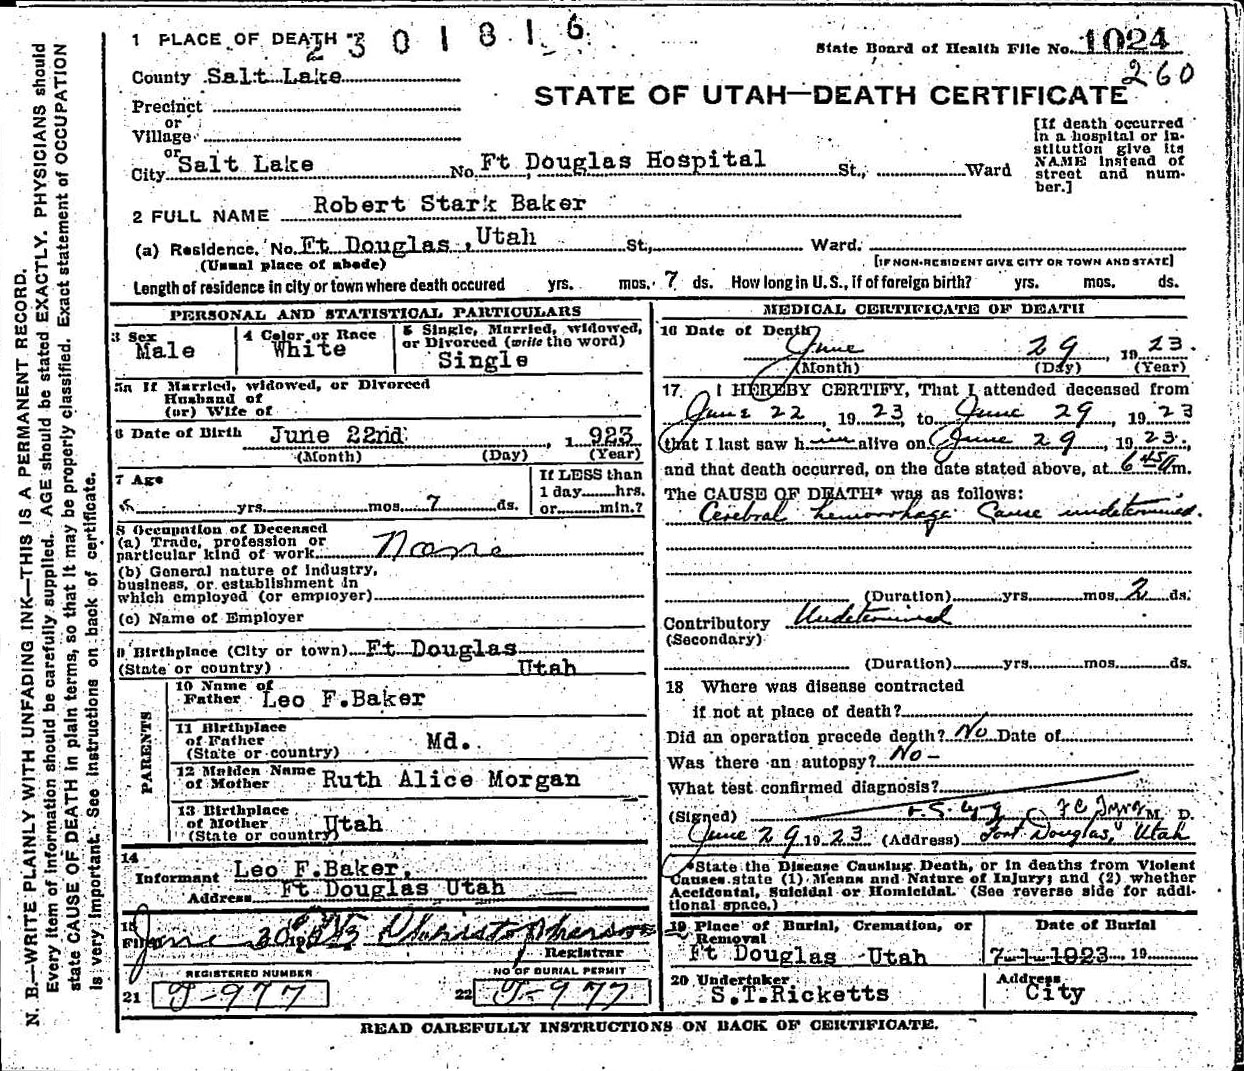 1 PLACE OF DEATH
2301816
State Board of Health File No. 1024
260
County Salt Lake
STATE OF UTAH—DEATH CERTIFICATE
Precinct
or
Village
or
City Salt Lake No. Ft Douglas Hospital St., Ward
[If death occurred
in a hospital or in-
stitution give its
NAME instead of
street and num-
ber.]
2 FULL NAME Robert Stark Baker
(a) Residence. No. Ft Douglas, Utah St., Ward.
(Usual place of abode)
[IF NON-RESIDENT GIVE CITY OR TOWN AND STATE]
Length of residence in city or town where death occured yrs. mos. 7 ds. How long in U. S., if of foreign birth? yrs. mos. ds.
PERSONAL AND STATISTICAL PARTICULARS
3 Sex
Male
4 Color or Race
White
5 Single, Married, widowed,
or Divorced (write the word)
Single
5a If Married, widowed, or Divorced
Husband of
(or) Wife of
6 Date of Birth June 22nd, 1 923
(Month) (Day) (Year)
7 Age
yrs. mos. 7 ds.
If LESS than
1 day hrs.
or min.?
8 Occupation of Deceased
(a) Trade, profession or
particular kind of work None
(b) General nature of Industry,
business, or establishment in
which employed (or employer)
(c) Name of Employer
9 Birthplace (City or town) Ft Douglas
(State or country) Utah
PARENTS
10 Name of
Father Leo F.Baker
11 Birthplace
of Father Md.
(State or country)
12 Maiden Name
of Mother Ruth Alice Morgan
13 Birthplace
of Mother Utah
(State or country)
14
Informant Leo F.Baker.
Address Ft Douglas Utah
15
Filed June 30 1923
Registrar
REGISTERED NUMBER
21 J-977
NO OF BURIAL PERMIT
22 J-977
MEDICAL CERTIFICATE OF DEATH
16 Date of Death
June 29, 1923.
(Month) (Day) (Year)
17 I HEREBY CERTIFY, That I attended deceased from
June 22, 1923, to June 29, 1923
that I last saw him alive on June 29, 1923,
and that death occurred, on the date stated above, at 6 45 a m.
The CAUSE OF DEATH* was as follows:
Cerebral hemorrhage Cause undetermined.
(Duration) yrs. mos. 2 ds.
Contributory Undetermined
(Secondary)
(Duration) yrs. mos. ds.
18 Where was disease contracted
if not at place of death?
Did an operation precede death? No Date of
Was there an autopsy? No -
What test confirmed diagnosis?
(Signed) M. D.
June 29 1923 (Address) Fort Douglas, Utah
*State the Disease Causing Death, or in deaths from Violent
Causes state (1) Means and Nature of Injury; and (2) whether
Accidental, Suicidal or Homicidal. (See reverse side for addi-
tional space.)
19 Place of Burial, Cremation, or
Removal
Ft Douglas Utah
Date of Burial
7-1-1923. 19
20 Undertaker
S.T.Ricketts
Address
City
READ CAREFULLY INSTRUCTIONS ON BACK OF CERTIFICATE.
N. B.—WRITE PLAINLY WITH UNFADING INK—THIS IS A PERMANENT RECORD.
Every item of information should be carefully supplied. AGE should be stated EXACTLY. PHYSICIANS should
state CAUSE OF DEATH in plain terms, so that it may be properly classified. Exact statement of OCCUPATION
is very important. See instructions on back of certificate.